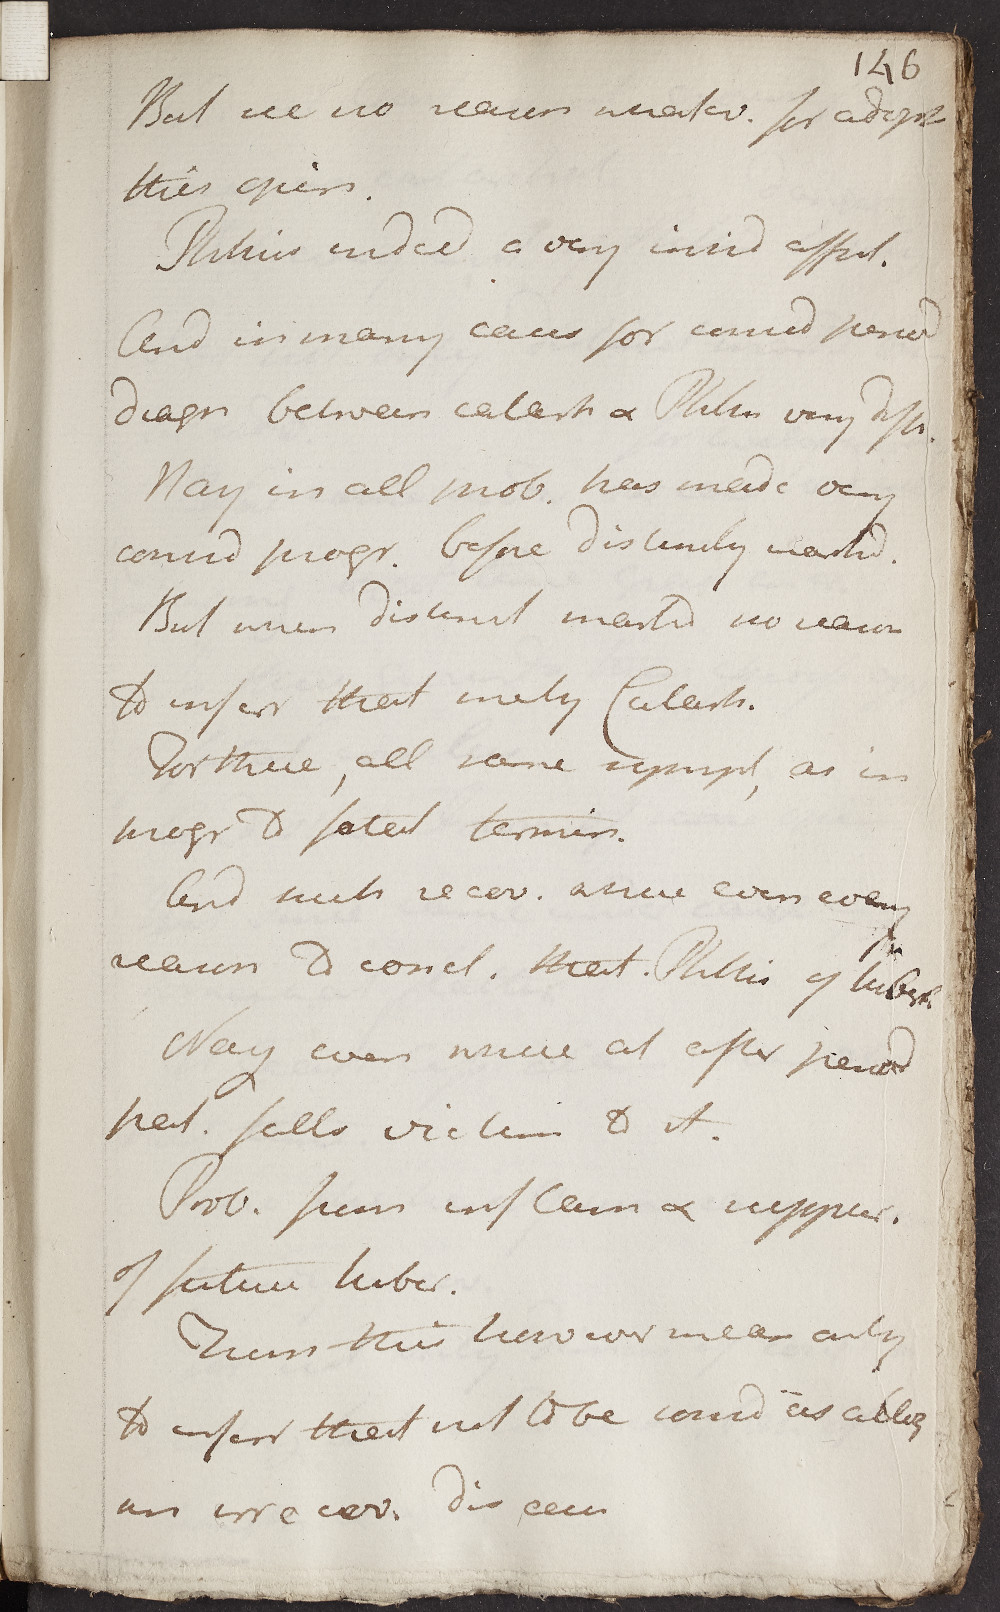 146
But see no reason whatev. for adopt
this opin.
Phthisis indeed a very insid affect.
And in many cases for consid period
diagn between catarrh & Phthis very diffic.
Nay in all prob. has made very
consid progr. before distinctly markd.
But when distinct markd no reason
to infer that merely Catarrh.
For there, all same sympt, as in
progr to fatal termin.
And such recov. where even every
reason to concl. that Phthisis of tuberc.
Nay even where at after period
pat. falls victim to it.
Prob. from inflam & suppur.
of future tuber.
From this however mean only
to infer that not to be consid as altog
an irrecov. disease